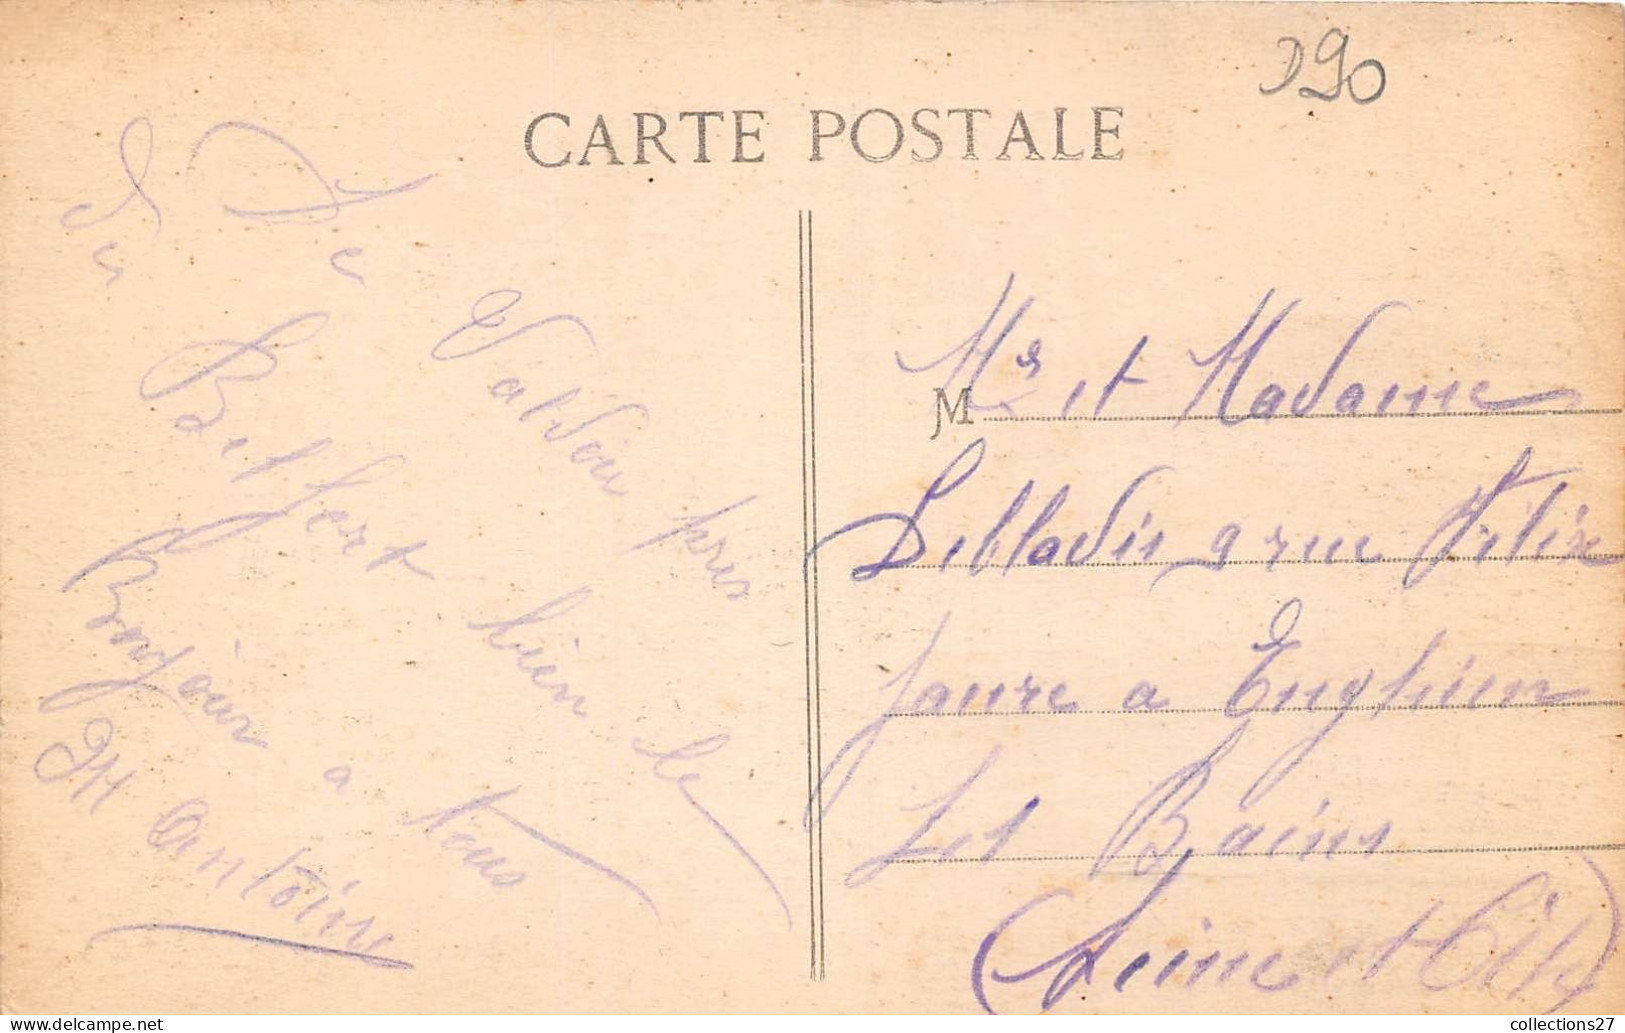 D90
CARTE POSTALE
De Valdoie près
de Belfort bien le
Bonjour a tous
Antoine
Mr et Madame
M
9 rue Felix
Faure a Enghien
Les Bains
(Seine et Oise)
collections27